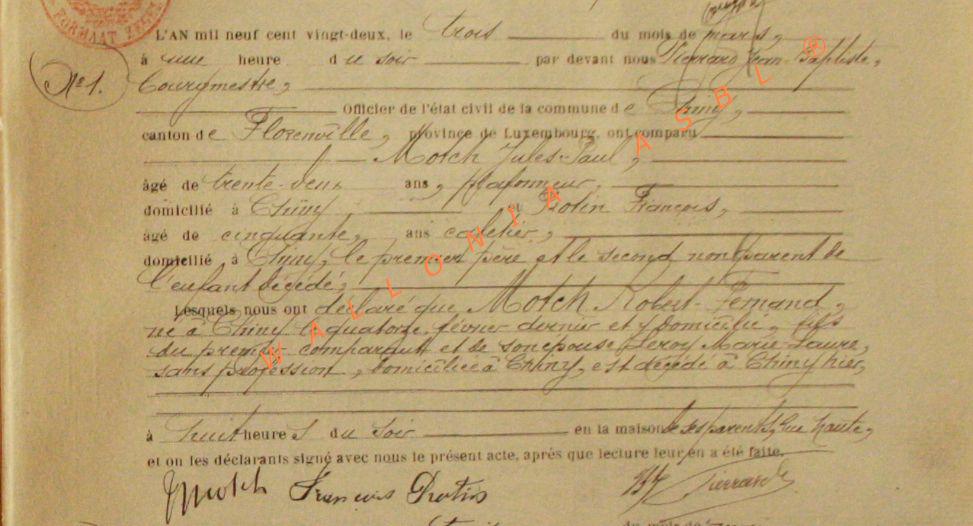 FORMAAT ZEGEL
L'AN mil neuf cent vingt-deux, le trois du mois de mars,
N°1.
à une heure du soir par devant nous Pierrard Jean-Baptiste,
Bourgmestre,
Officier de l'état civil de la commune de Chiny,
canton de Florenville, province de Luxembourg, ont comparu
Motch Jules-Paul,
âgé de trente-deux ans, plafonneur,
domicilié à Chiny et François,
âgé de cinquante, ans cafetier,
domicilié à Chiny, le premier père et le second non parent de
l'enfant décédé,
Lesquels nous ont déclaré que Motch Robert-Fernand,
né à Chiny le quatorze février dernier et y domicilié, fils
du premier comparant et de son épouse Leroy Marie-Laure,
sans profession, domiciliée à Chiny, est décédé à Chiny hier,
à huit heures du soir en la maison de ses parents, Rue Haute,
et ont les déclarants signé avec nous le présent acte, après que lecture leur en a été faite.
Motch François Pierrard
du mois de
WALLONIA ASBL®